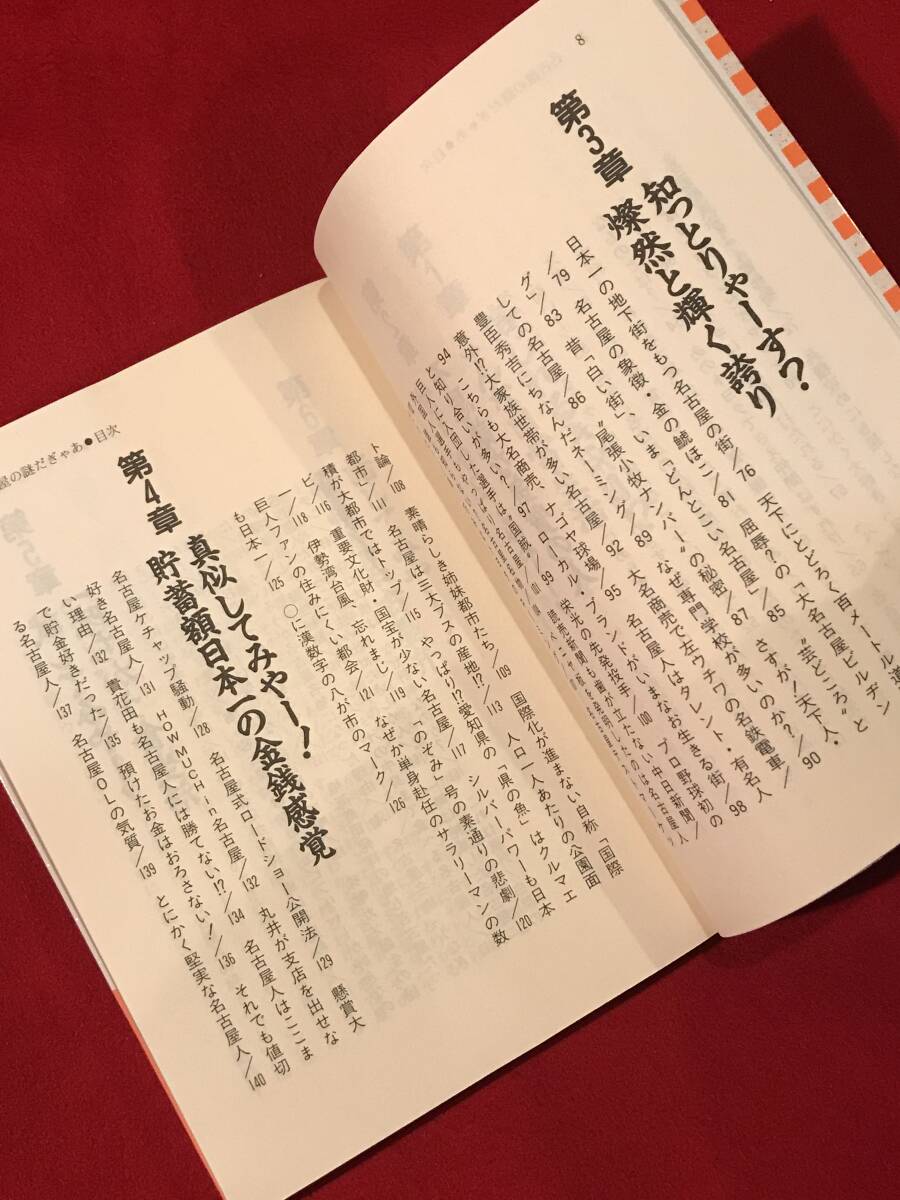 8
第3章
知っとりゃーすつ?
燦然と輝く誇り
日本一の地下街をもつ名古屋の街/76 天下にとどろく百メートル道
/79 名古屋の象徴・金の鯱ほこ/81 屈辱?の「大名古屋ビルヂン
グ」/83 昔「白い街」、いま「どんとこい名古屋」/85 〝芸どころ〟と
しての名古屋/86 〝尾張小牧ナンバー〟の秘密/87 さすが!天下人・
豊臣秀吉にちなんだネーミング/89 なぜ専門学校が多いのか?/90
意外!?大家族世帯が多い名古屋/92 大名商売で左ウチワの名鉄電車/
94 こちらも大名商売、ナゴヤ球場/95 名古屋人はタレント・有名人
と知り合いが多い?/97 ローカル・ブランドがいまなお生きる街/98
ト論/108 素晴らしき姉妹都市たち/109 国際化が進まない自称「国際
都市」/111 名古屋は三大ブスの産地!?/113 人口一人あたりの公園面
積が大都市ではトップ/115 やっぱり!?愛知県の「県の魚」はクルマエ
ビ/116 重要文化財・国宝が少ない名古屋/117 シルバーパワーも日本
一/118 伊勢湾台風、忘れまじ/119 「のぞみ」号の素通りの悲劇/120
巨人ファンの住みにくい都会/121 なぜか単身赴任のサラリーマンの数
も日本一/125 ○に漢数字の八が市のマーク/126
第4章
真似してみやー!
貯蓄額日本一の金銭感覚
名古屋ケチャップ騒動/128 名古屋式ロードショー公開法/129 懸賞大
好き名古屋人/131 HOW MUCH in 名古屋/132 丸井が支店を出せな
い理由/132 貴花田も名古屋人には勝てない!?/134 名古屋人はここま
で貯金好きだった/135 預けたお金はおろさない!/136 それでも値切
る名古屋人/137 名古屋OLの気質/139 とにかく堅実な名古屋人/140
の謎だぎゃあ●目次